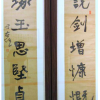 說劍增慷慨
琢玉思堅貞